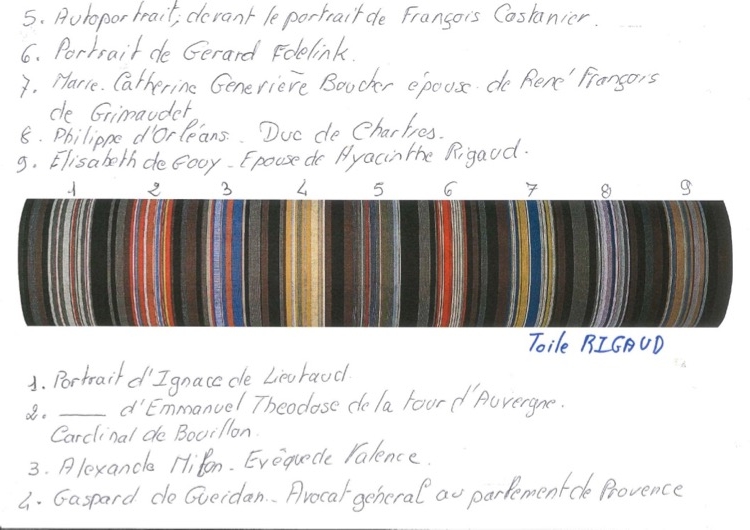 5. Autoportrait, devant le portrait de François Castanier.
6. Portrait de Gerard Edelink.
7. Marie. Catherine Geneviève Boucher épouse de René François
de Grimaudet
8. Philippe d'Orléans. Duc de Chartres.
9. Elisabeth de Gouy - Epouse de Hyacinthe Rigaud.
1 2 3 4 5 6 7 8 9
Toile RIGAUD
1. Portrait d'Ignace de Lieutaud.
2. ___ d'Emmanuel Theodose de la tour d'Auvergne.
Cardinal de Bouillon.
3. Alexandre Milon - Evêque de Valence.
4. Gaspard de Gueidan - Avocat général au parlement de Provence